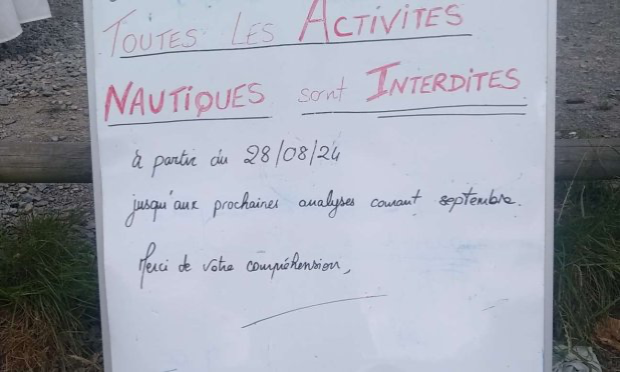 TOUTES LES ACTIVITES
NAUTIQUES sont INTERDITES
à partir du 28/08/24
jusqu'aux prochaines analyses courant septembre.
Merci de votre compréhension,